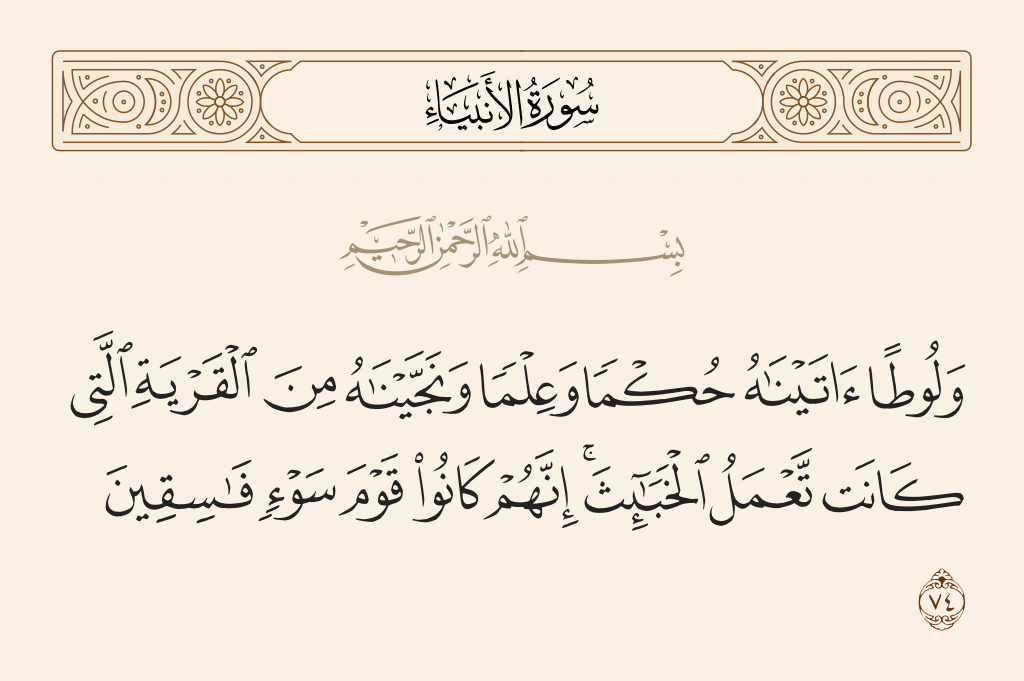 سُورَةُ الأَنبِيَاءِ
بِسْمِ ٱللَّهِ ٱلرَّحْمَٰنِ ٱلرَّحِيمِ
وَلُوطًا ءَاتَيْنَٰهُ حُكْمًا وَعِلْمًا وَنَجَّيْنَٰهُ مِنَ ٱلْقَرْيَةِ ٱلَّتِى
كَانَت تَّعْمَلُ ٱلْخَبَٰٓئِثَ ۚ إِنَّهُمْ كَانُوا۟ قَوْمَ سَوْءٍ فَٰسِقِينَ
٧٤